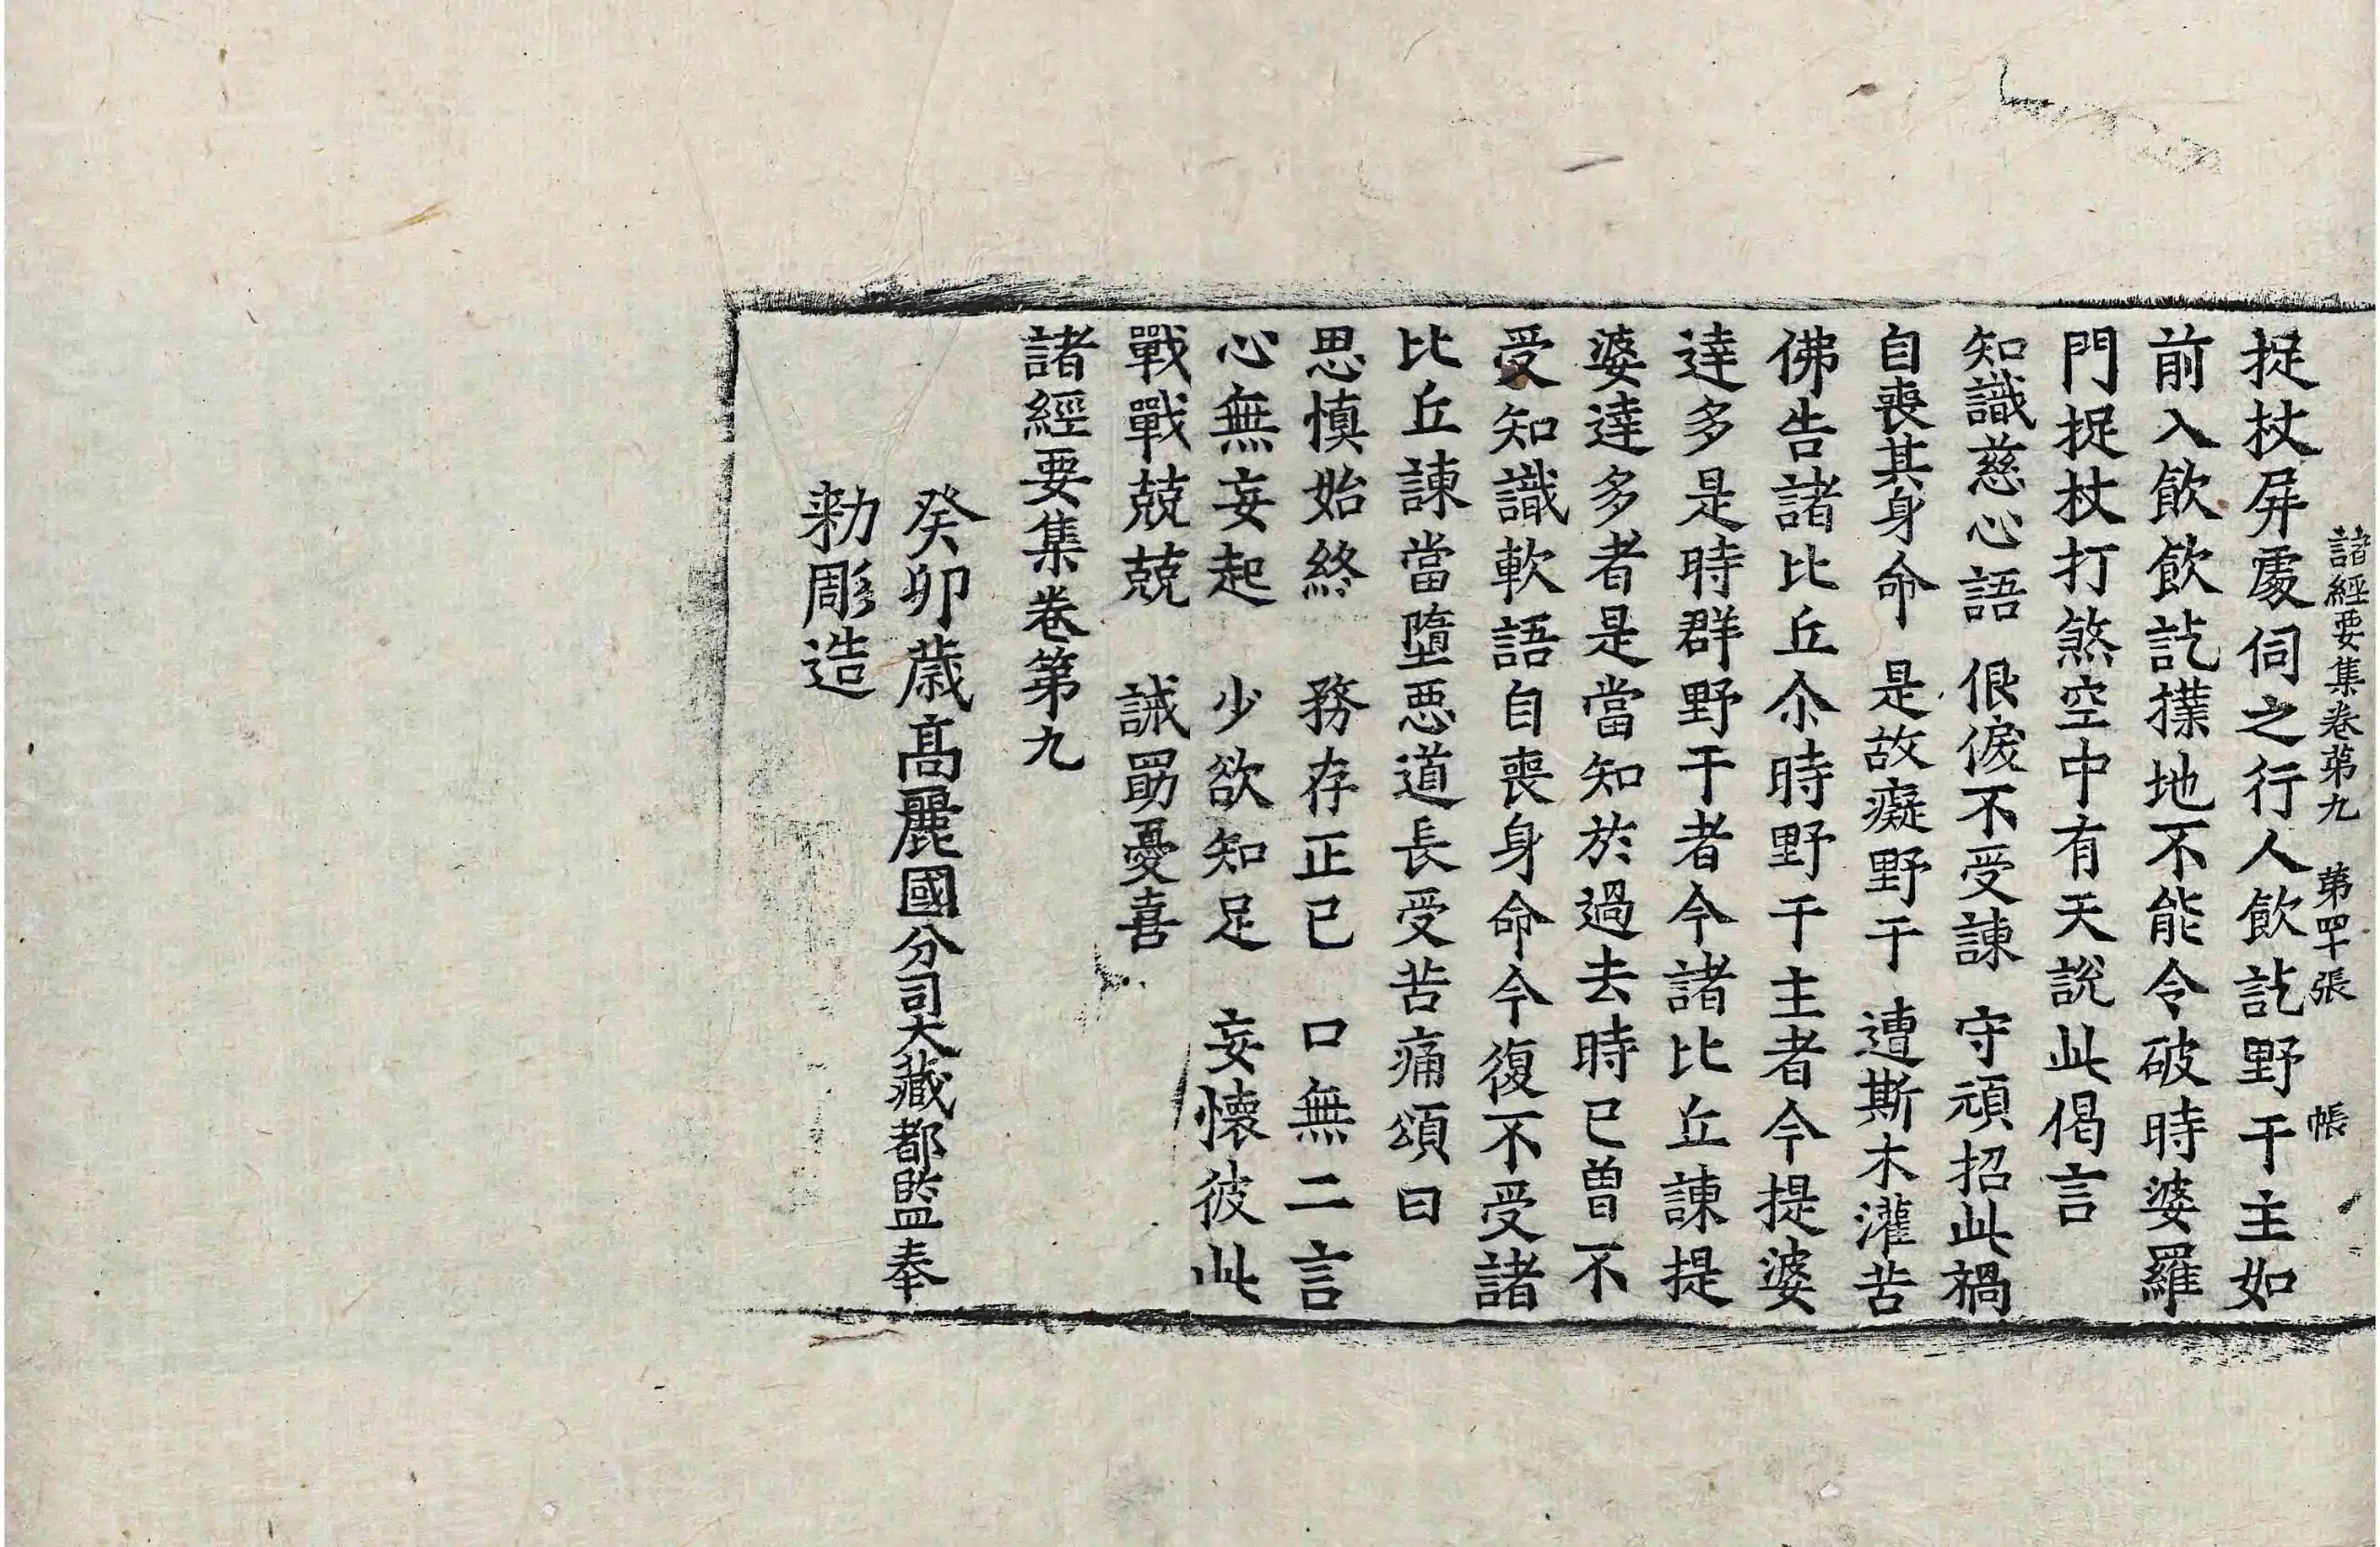 諸經要集卷第九 第四十張 帳
捉杖屏處伺之行人飲訖野干主如
前入飲飲訖撲地不能令破時婆羅
門捉杖打煞空中有天說此偈言
知識慈心語 佷傶不受諫 守頑招此禍
自喪其身命 是故癡野干 遭斯木灌苦
佛告諸比丘尒時野干主者今提婆
達多是時群野干者今諸比丘諫提
婆達多者是當知於過去時已曾不
受知識軟語自喪身命今復不受諸
比丘諫當墮惡道長受苦痛頌曰
思慎始終 務存正已 口無二言
心無妄起 少欲知足 妄懷彼此
戰戰兢兢 誡勗憂喜
諸經要集卷第九
癸卯歲高麗國分司大藏都監奉
勑彫造